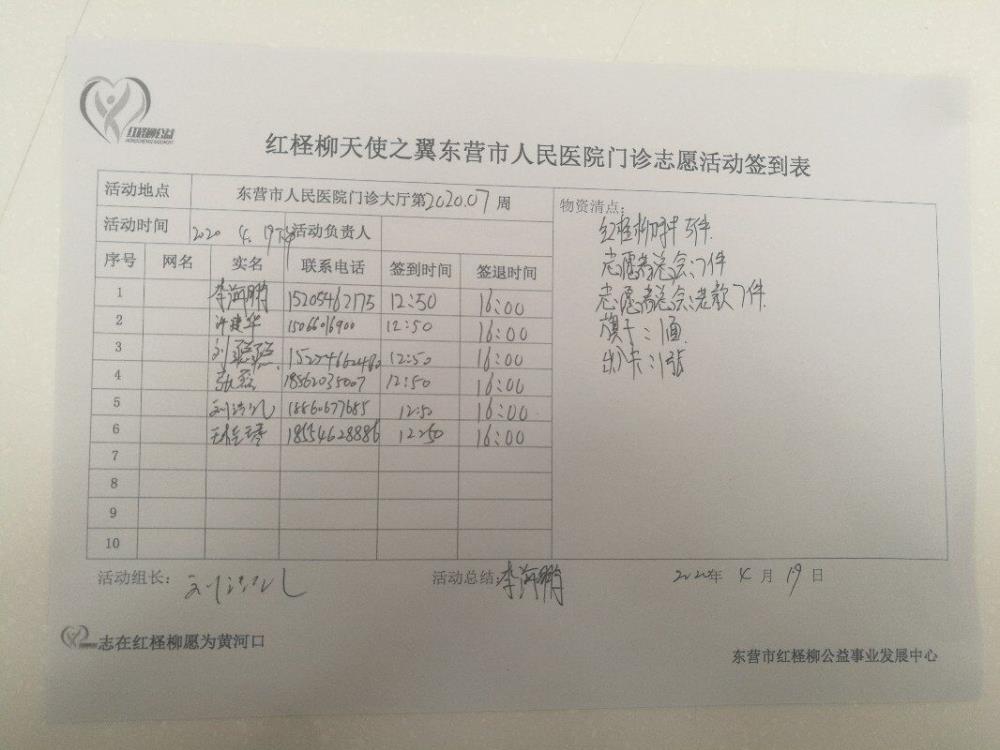 红柽柳公益
红柽柳天使之翼东营市人民医院门诊志愿活动签到表
活动地点 东营市人民医院门诊大厅第2020.07周
活动时间 2020 4.19 活动负责人
序号 网名 实名 联系电话 签到时间 签退时间
1 李海鹏 15205462175 12:50 16:00
2 许建华 1506606900 12:50 16:00
3 刘 12:50 16:00
4 张磊 18562035007 12:50 16:00
5 刘 18860677685 12:50 16:00
6 18554628886 12:50 16:00
7
8
9
10
物资清点:
红柽柳 5件
志愿者总会:7件
志愿者总会老款7件
旗子:1面
:1张
活动组长: 刘
活动总结: 李海鹏
2020年 4月 19日
志在红柽柳愿为黄河口
东营市红柽柳公益事业发展中心